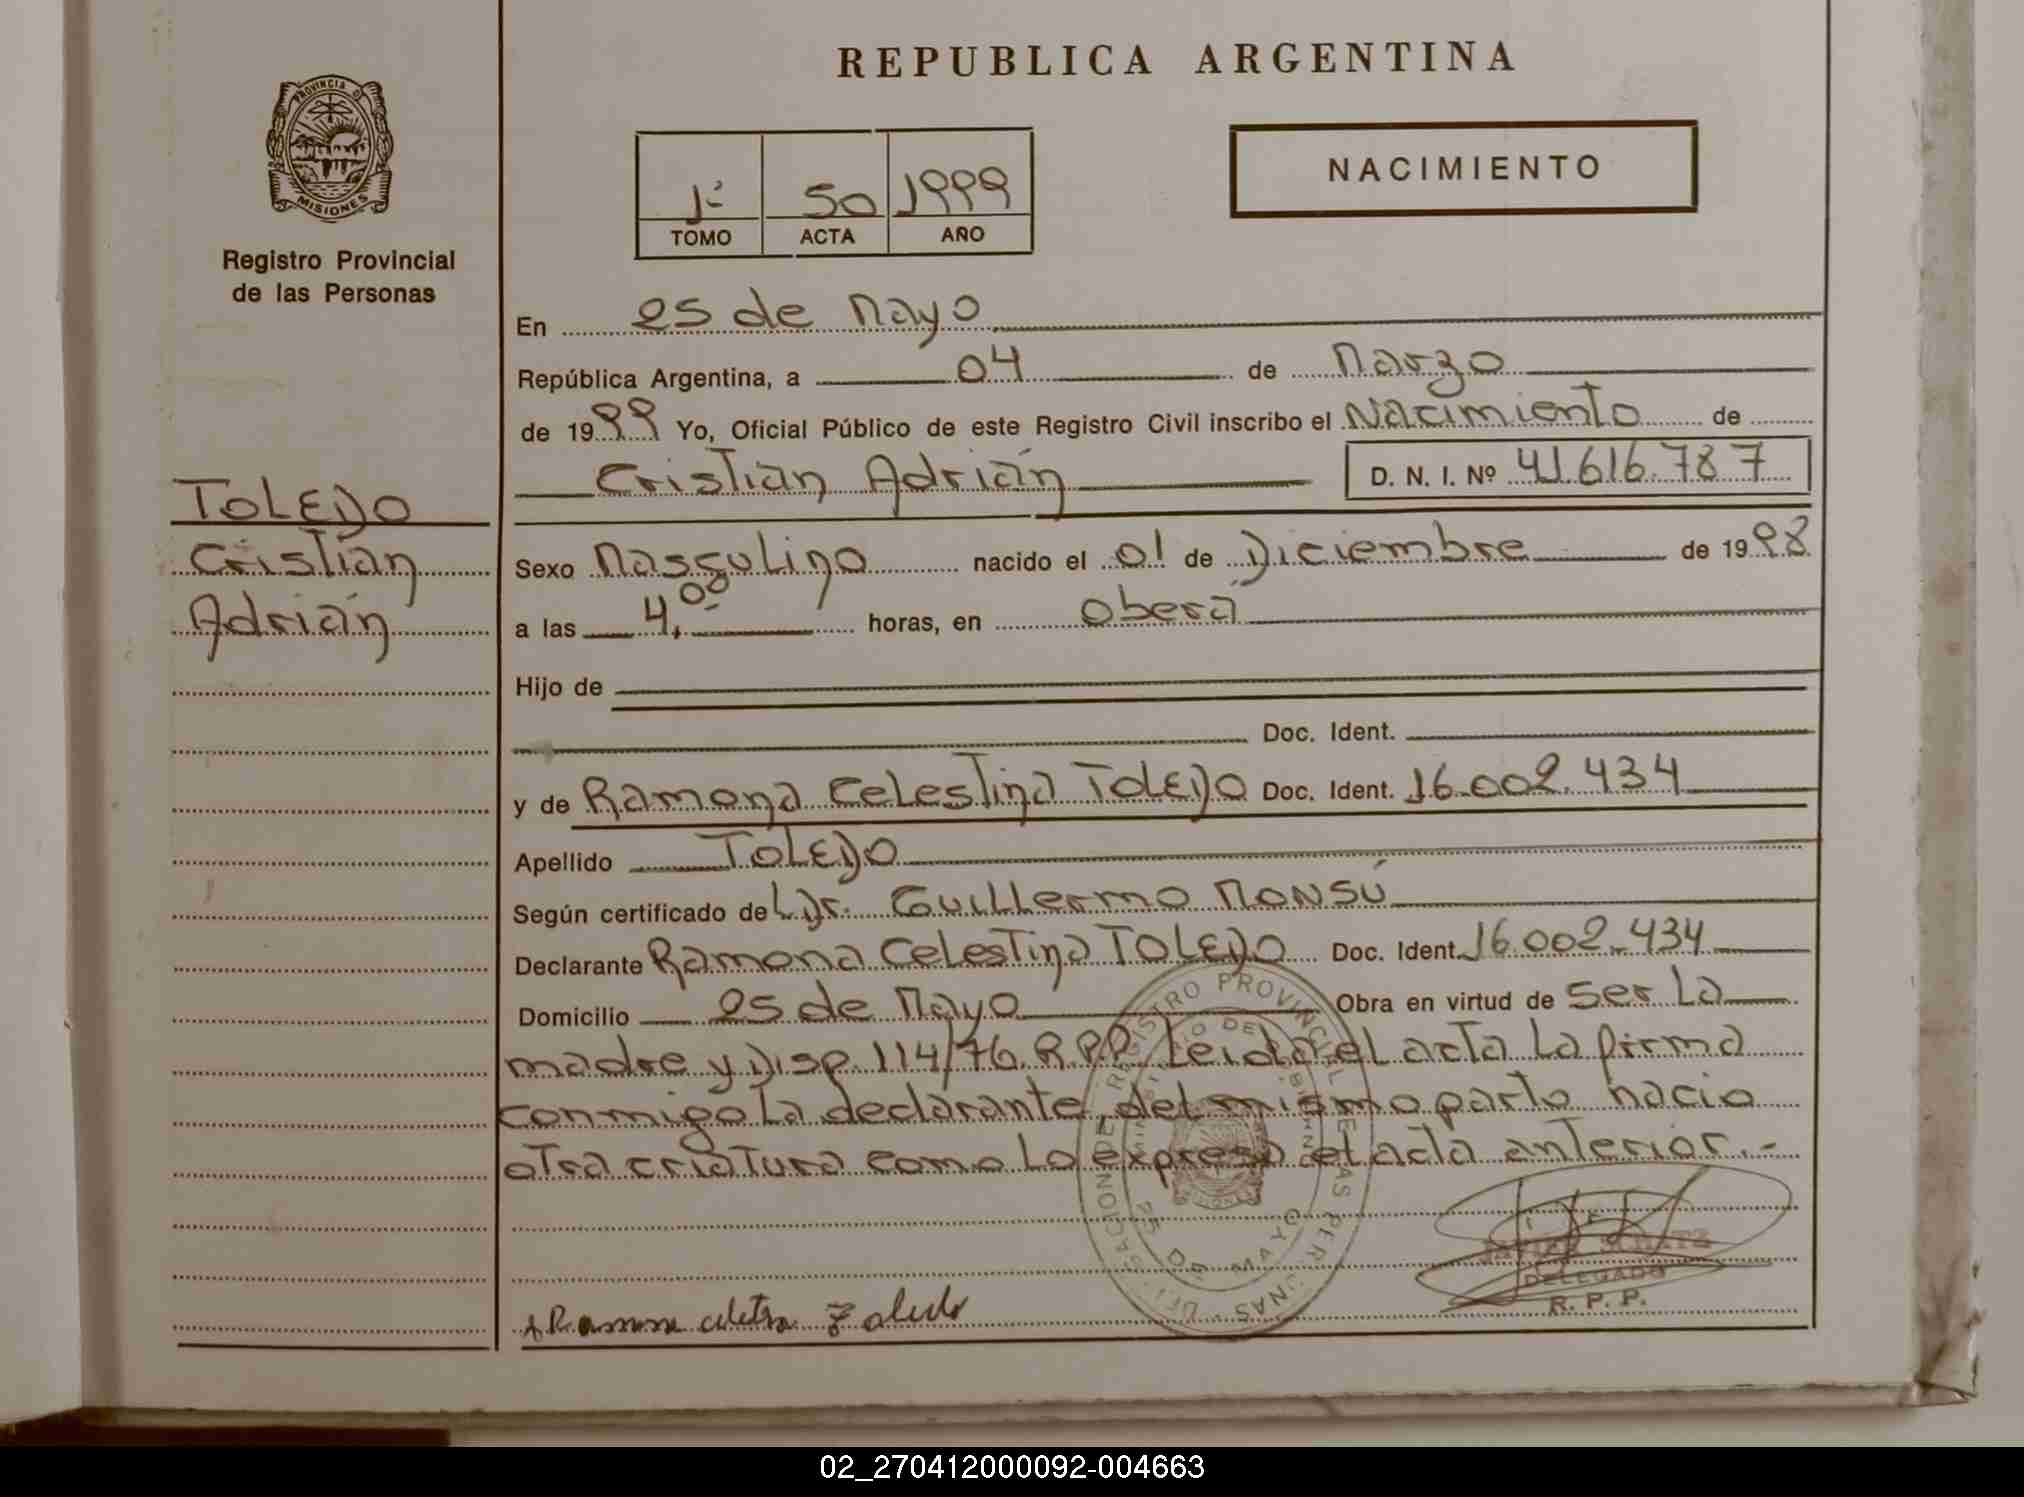 REPUBLICA ARGENTINA
PROVINCIA D
MISIONES
Registro Provincial
de las Personas
NACIMIENTO
1º 50 1999
TOMO ACTA AÑO
En 25 de Mayo
República Argentina, a 04 de Marzo
de 1999 Yo, Oficial Público de este Registro Civil inscribo el Nacimiento de
Cristian Adrián D. N. I. Nº 41.616.787
TOLEDO
Cristian
Adrián
Sexo Masculino nacido el 01 de Diciembre de 1998
a las 4,00 horas, en Oberá
Hijo de
Doc. Ident.
y de Ramona Celestina TOLEDO Doc. Ident. 16.002.434
Apellido TOLEDO
Según certificado de Dr. Guillermo Monsú
Declarante Ramona Celestina TOLEDO Doc. Ident. 16.002.434
Domicilio 25 de Mayo Obra en virtud de ser La
madre y Disp. 114/76. R.P.P. Leida el acta La firma
conmigo La declarante, del mismo parto nacio
otra criatura como Lo expresa el acta anterior.-
REGISTRO PROVINCIAL DE LAS PERSONAS
25 DE MAYO
DELEGADO
R. P. P.
Ramona Toledo
02_270412000092-004663